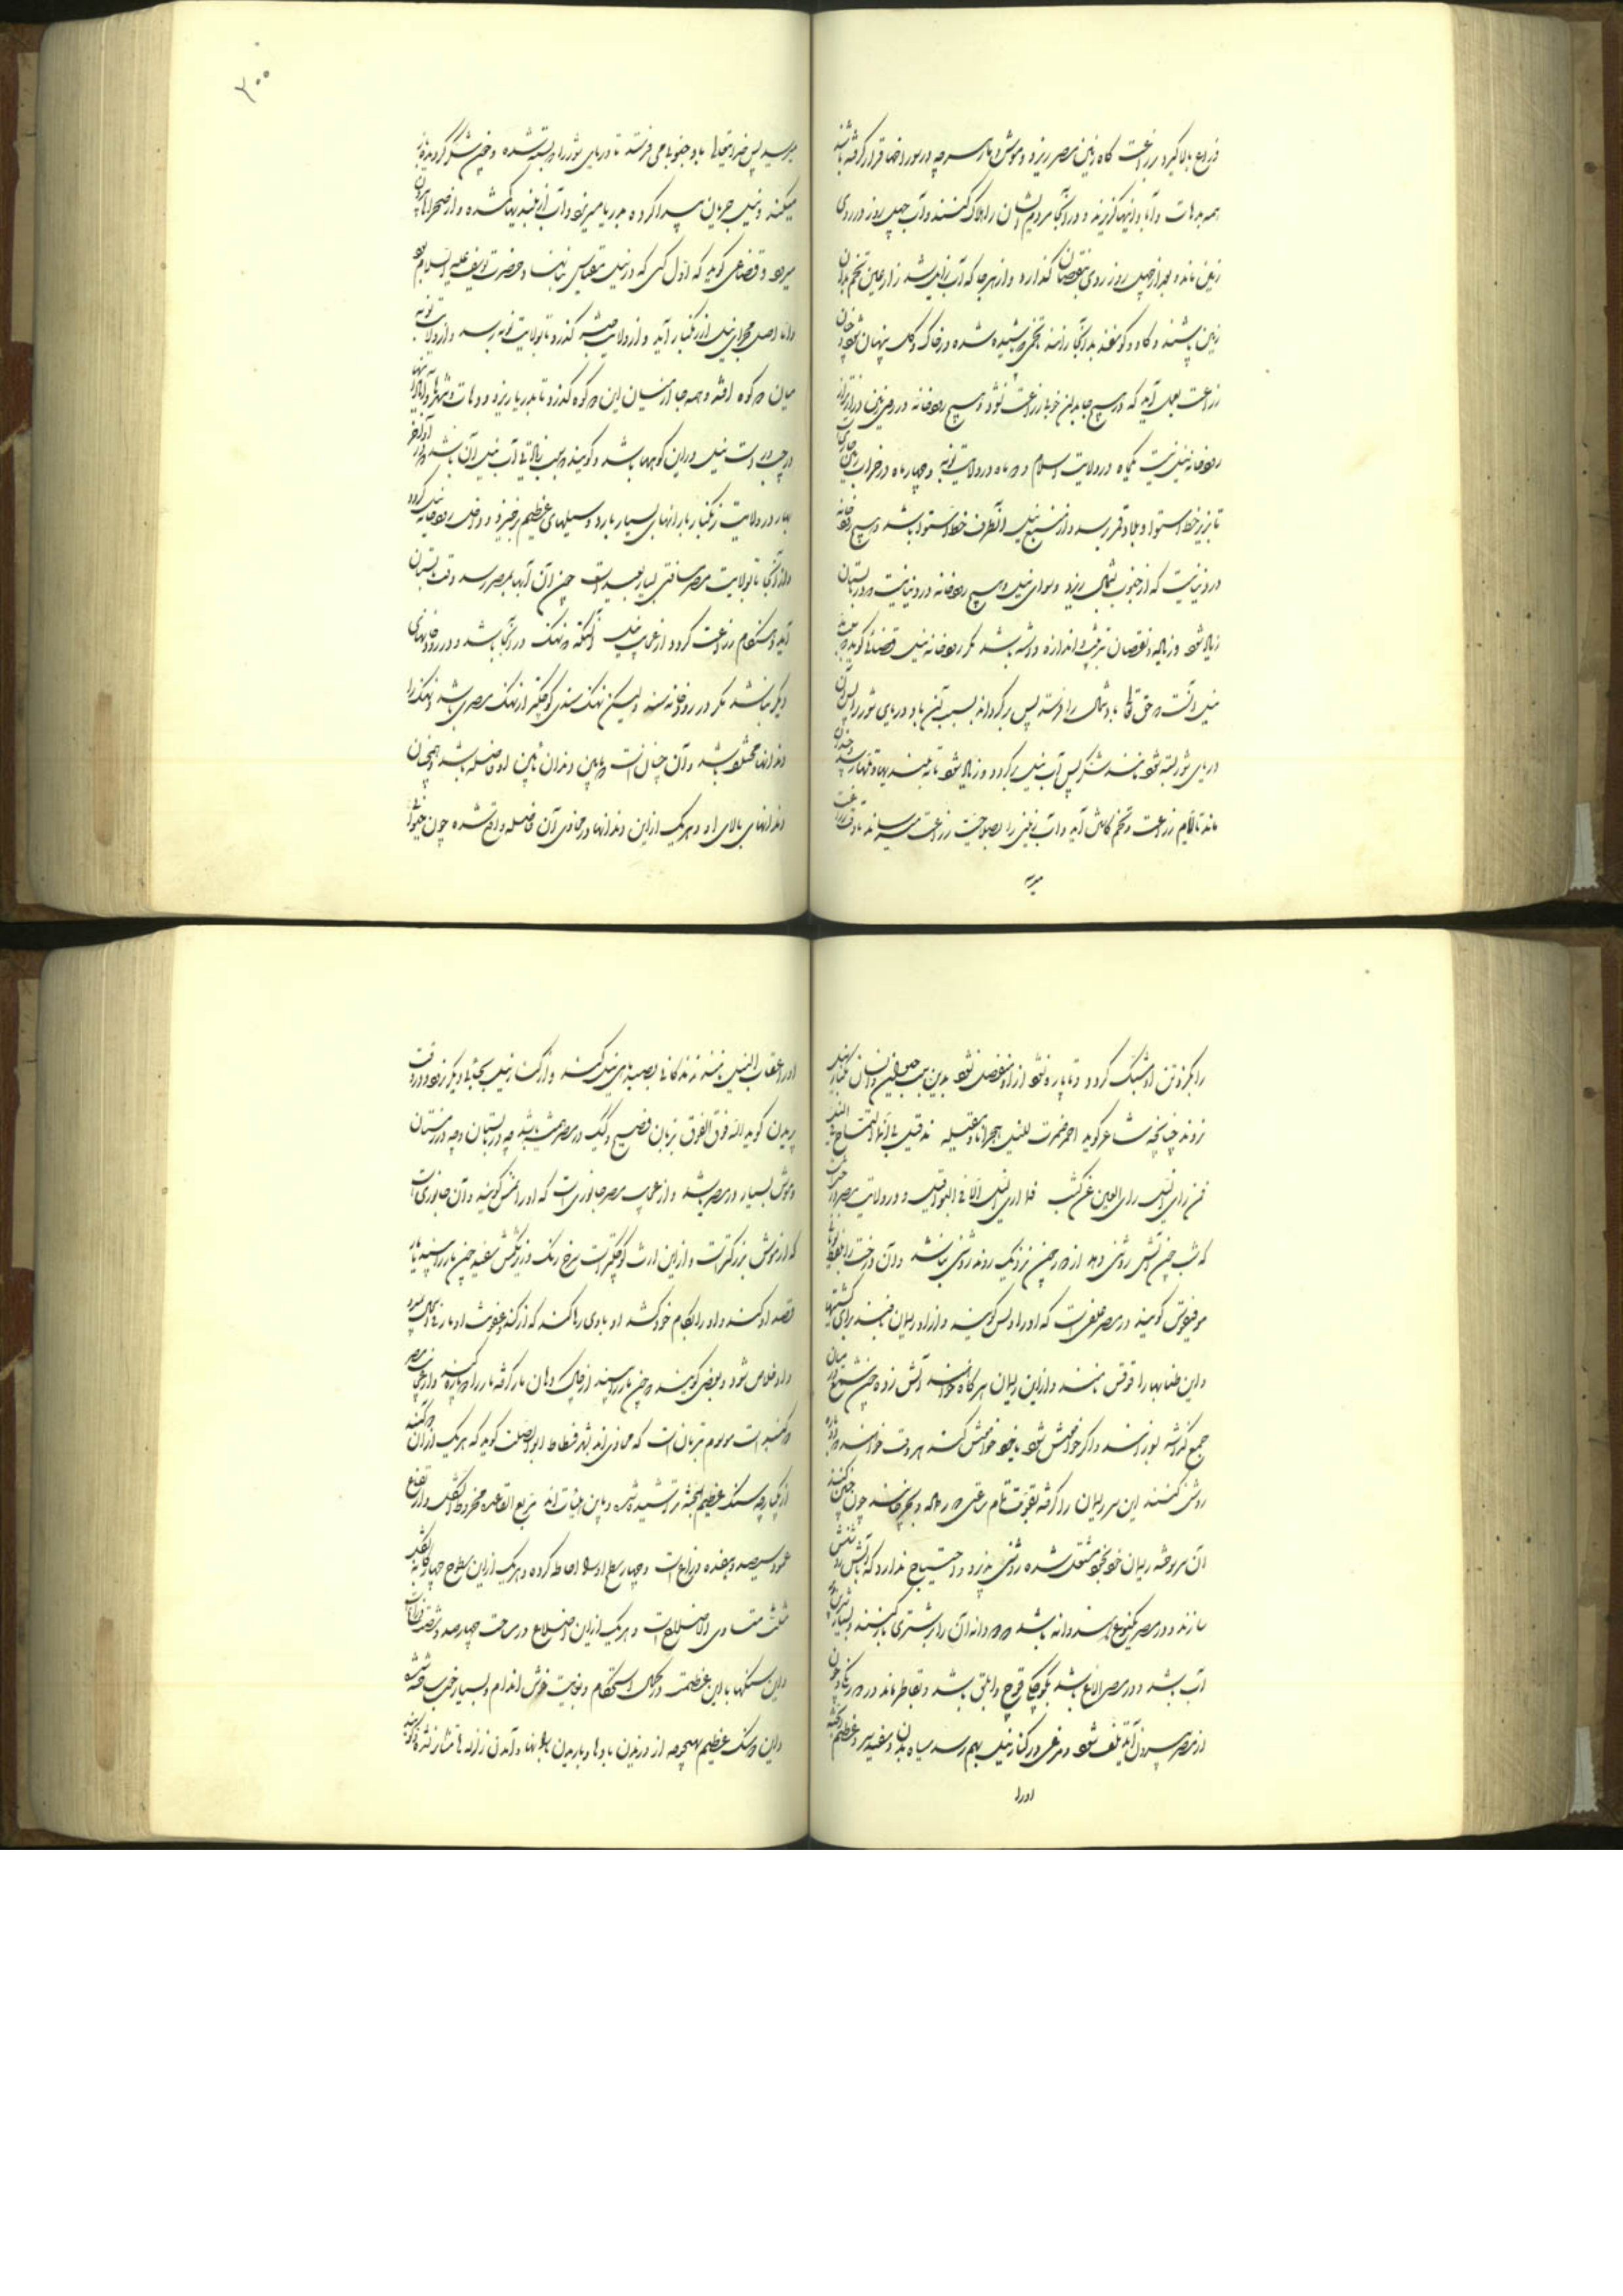 ذراع بالا گیرد زراعت گاه زمین مصر ریزد و موش و مار هر چه در سوراخها قرار گرفته باشند
همه بدهات و آبادانیها گریزند و در آنجا مردم ایشان را هلاک کنند و آب چهل روز در روی
زمین ماند و بعد از چهل روز روی بنقصان گذارد و از هر جا که آب زایل شد زارعین تخم بدان
زمین پاشند و گاو و گوسفند بدانجا رانند تخم پاشیده شده در خاک و گل پنهان شود
زراعت بعمل آید که در هیچ جا بدان خوبی زراعت نشود و هیچ رودخانه در روی زمین درازتر از
رودخانه نیل نیست یکماه در ولایت اسلام و دو ماه در ولایت نوبه و چهار ماه در خراب زمین جاری
تا بزیر خط استوا و بلاد قمر رسد و از منبع نیل آنطرف خط استوا باشد و هیچ رودخانه
در دنیا نیست که از جنوب بشمال ریزد و سوای نیل و هیچ رودخانه در دنیا نیست که در تابستان
زیاد شود و زیاده و نقصان بترتیب و اندازه داشته باشد مگر رودخانه نیل قضاعی گوید سبب
نیل آنست که حق تعالی باد شمال را فرستد پس برگرداند بسبب آن باد دریای شور را پس آن
دریای شور بسته شود مانند سد پس آب نیل برگردد و زیاد شود تا به بلندیها و تلها رسد چندان
ماند تا ایام زراعت و تخم کاشتن آید و آب زمین را بصلاحیت زراعت میرساند تا وقت زراعت
میرسد
۲۰۰
میرسد پس خداوند تعالی باد جنوبی میفرستد تا دریای شور را که بسته شده
میکند و نیل جریان پیدا کرده بدریا میریزد و آب از بلندیها کم شده و از صحراها بیرون
میرود و قضاعی گوید که اول کسی که در نیل مقیاس بنا نهاد حضرت یوسف علیه السلام بود
و اما اصل مجرای نیل از زنگبار آید و از ولایت حبشه گذرد تا بولایت نوبه رسد و از ولایت نوبه
میان دو کوه افتد و همه جا از میان این دو کوه گذرد تا بدریا ریزد و دهات و شهرها
در چپ و راست نیل در این کوهها باشد و گویند سبب زیادتی آب نیل آن باشد که در آخر
بهار در ولایت زنگبار بارانهای بسیار بارد و سیلهای عظیم برخیزد و داخل رودخانه نیل گردد
و از آنجا تا بولایت مصر مسافتی بسیار بعید است چون آن آبها بمصر رسد وقت تابستان
آید و هنگام زراعت گردد از عجایب نیل آنکه نهنگ در آنجا باشد و در رودخانهای
دیگر نباشد مگر در رودخانه سند و لیکن نهنگ سندی کوچکتر از نهنگ مصری باشد و نهنگ را
دندانها مختلف باشد و آن چنان است که مابین دندان پایین او فاصله باشد همچنان
دندانهای بالای او و هر یک از این دندانها در محاذی آن فاصله واقع شده چون حیوان
را بگیرد تن او مشبک گردد و تا پاره نشود از او منفصل نشود بدین سبب حیوان و انسان بکنار نیل
نروند چنانچه شاعر گوید اضمرت للنیل هجرانا و مقلیة مذ قیل لی انما التمساح فی النیل
فمن رای النیل رای العین عن کثب فما اری النیل الا فی البواقیل و در ولایت مصر درختی است
که شب چون آتش روشنی دهد از دور چون نزدیک روند روشنی نباشد و آن درخت را بلفظ
گویند در مصر علفی است که او را دیس گویند و از او ریسمان بافند برای کشتیها
و این طنابها را قوقس نامند و از این ریسمان هر گاه خواهند آتش زده چون شمع در میان
جمع گذاشته نور دهد و اگر خاموش شود یا خود خاموش کنند هر وقت خواهند دوباره
روشن کنند این سر ریسمان را گرفته بقوت تمام چرخانند چون چنین کنند
آن سوخته ریسمان خودبخود مشتعل شده روشنی پذیرد و احتیاج ندارد که بآتش روشنش
سازند و در مصر یکنوع هندوانه باشد دو دانه آن را بر شتری بار کنند و بسیار شیرین و پر
آب باشد و در مصر الاغی باشد بکوچکی قوچ و ابلق باشد و بقاطر ماند در رنگ و چون
از مصر بیرون آید تلف شود و مرغی در کنار نیل بهم رسد سیاه بدن و سفید سر و عظیم الجثه
او را
او را عقاب النیل نامند زندگانی بصید ماهی نیل کند و از کنار نیل بجای دیگر نرود و در وقت
پریدن گوید الله فوق الفوق بزبان فصیح و کیک در مصر همیشه باشد چه در تابستان و چه در زمستان
و موش بسیار در مصر باشد و از عجایب مصر جانوری است که او را نمس گویند و آن جانوری است
که از موش بزرگتر است و از این ارث کوچکتر است سرخ رنگ و زیر شکمش سفید چون مار را بیند
قصد او کند و او را بکام خود کشد او بادی رها کند که از گند و عفونت او مار فی الحال بمیرد
و او خلاص شود و بعضی گویند که چون مار را بیند از چالاکی دهان مار گرفته مار را دو پاره کند و از عجایب مصر
دو گنبد است موسوم بهرمان است که محاذی اند بشهر فسطاط ابو الصلت گوید که هر یک از آن دو گنبد
از یکپارچه سنگ عظیم الجثه تراشیده شده و باین هیات اند مربع القاعده مخروط الشکل و ارتفاع
عمود سیصد و هفده ذراع است و چهار سطح او را احاطه کرده و هر یک از این سطوح چهارگانه بشکل
مثلث متساوی الاضلاع است و هر یک از این اضلاع در مساحت چهارصد و شصت ذراع است
و این سنگها با این عظمت در کمال استحکام و بغایت خوش اندام و بسیار خوب ساخته شده
و این دو سنگ عظیم بهیچوجه از وزیدن بادها و باریدن بارانها و آمدن زلزله ها متأثر نشده و گویند